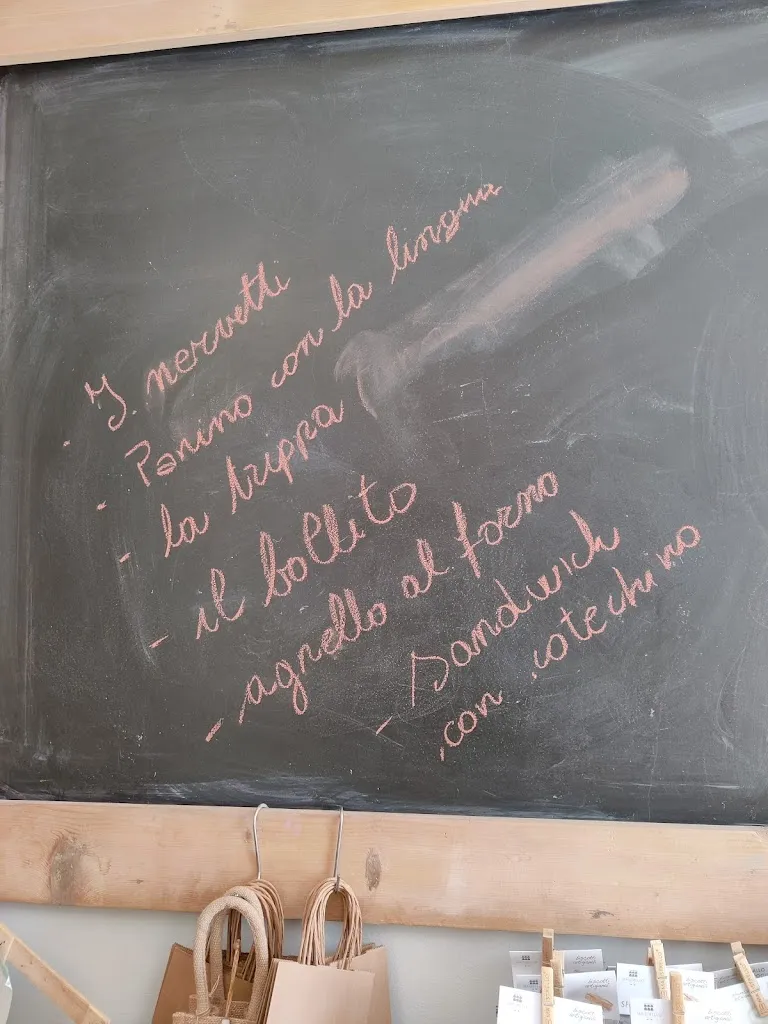 - I nervetti
- Panino con la lingua
- la trippa
- il bollito
- agnello al forno
- sandwich
con cotechino